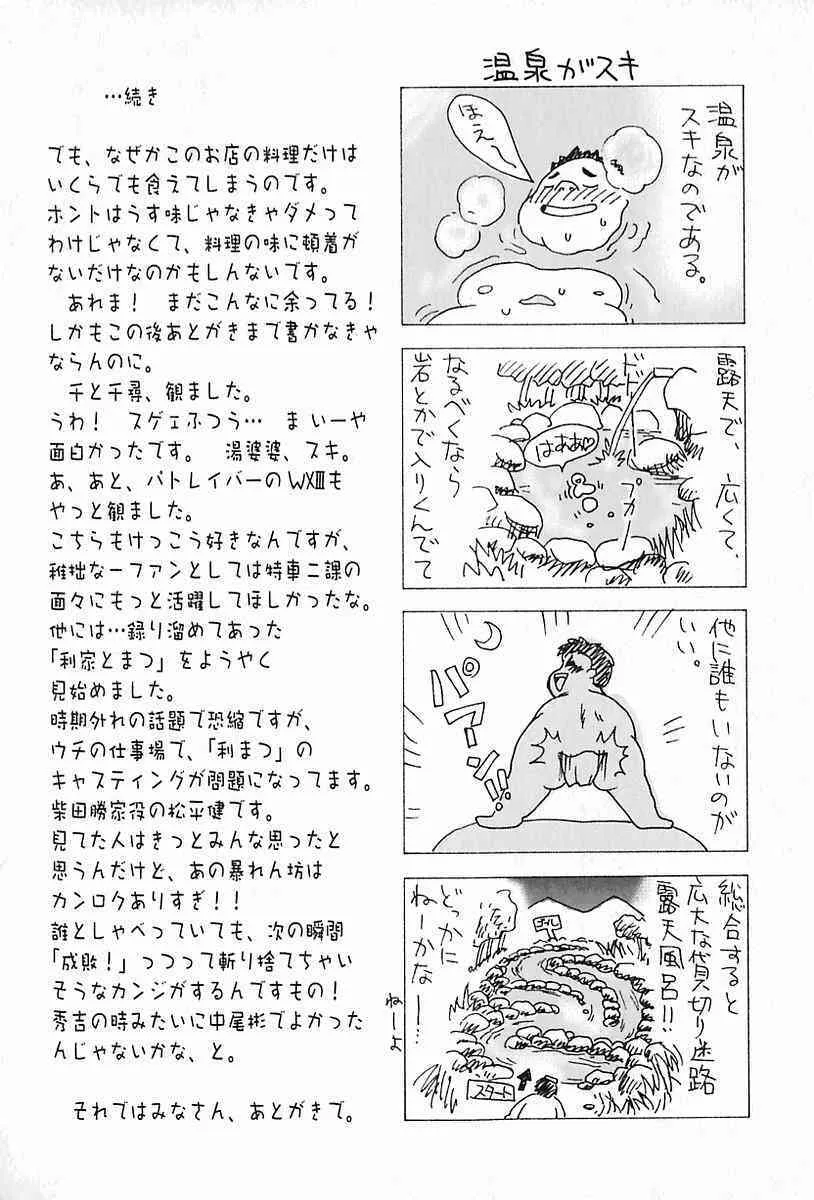 …続き
でも、なぜかこのお店の料理だけは
いくらでも食えてしまうのです。
ホントはうす味じゃなきゃダメって
わけじゃなくて、料理の味に頓着が
ないだけなのかもしんないです。
あれま！　まだこんなに余ってる！
しかもこの後あとがきまで書かなきゃ
ならんのに。
千と千尋、観ました。
うわ！　スゲェふつう…　ま いーや
面白かったです。　湯婆婆、スキ。
あ、あと、パトレイバーのWXⅢも
やっと観ました。
こちらもけっこう好きなんですが、
稚拙な一ファンとしては特車二課の
面々にもっと活躍してほしかったな。
他には…録り溜めてあった
「利家とまつ」をようやく
見始めました。
時期外れの話題で恐縮ですが、
ウチの仕事場で、「利まつ」の
キャスティングが問題になってます。
柴田勝家役の松平健です。
見てた人はきっとみんな思ったと
思うんだけど、あの暴れん坊は
カンロクありすぎ！！
誰としゃべっていても、次の瞬間
「成敗！」つつって斬り捨てちゃい
そうなカンジがするんですもの！
秀吉の時みたいに中尾彬でよかった
んじゃないかな、と。
それではみなさん、あとがきで。
温泉がスキ
温泉が
スキなのである。
ほえ〜
露天で、広くて、
なるべくなら
岩とかで入りくんでて
ドド
はああ♡
プカ
他に誰もいないのが
いい。
パアーン!!
総合すると
広大な貸切り迷路
露天風呂!!
どっかに
ねーかなー…
ねーよ
ゴール
スタート